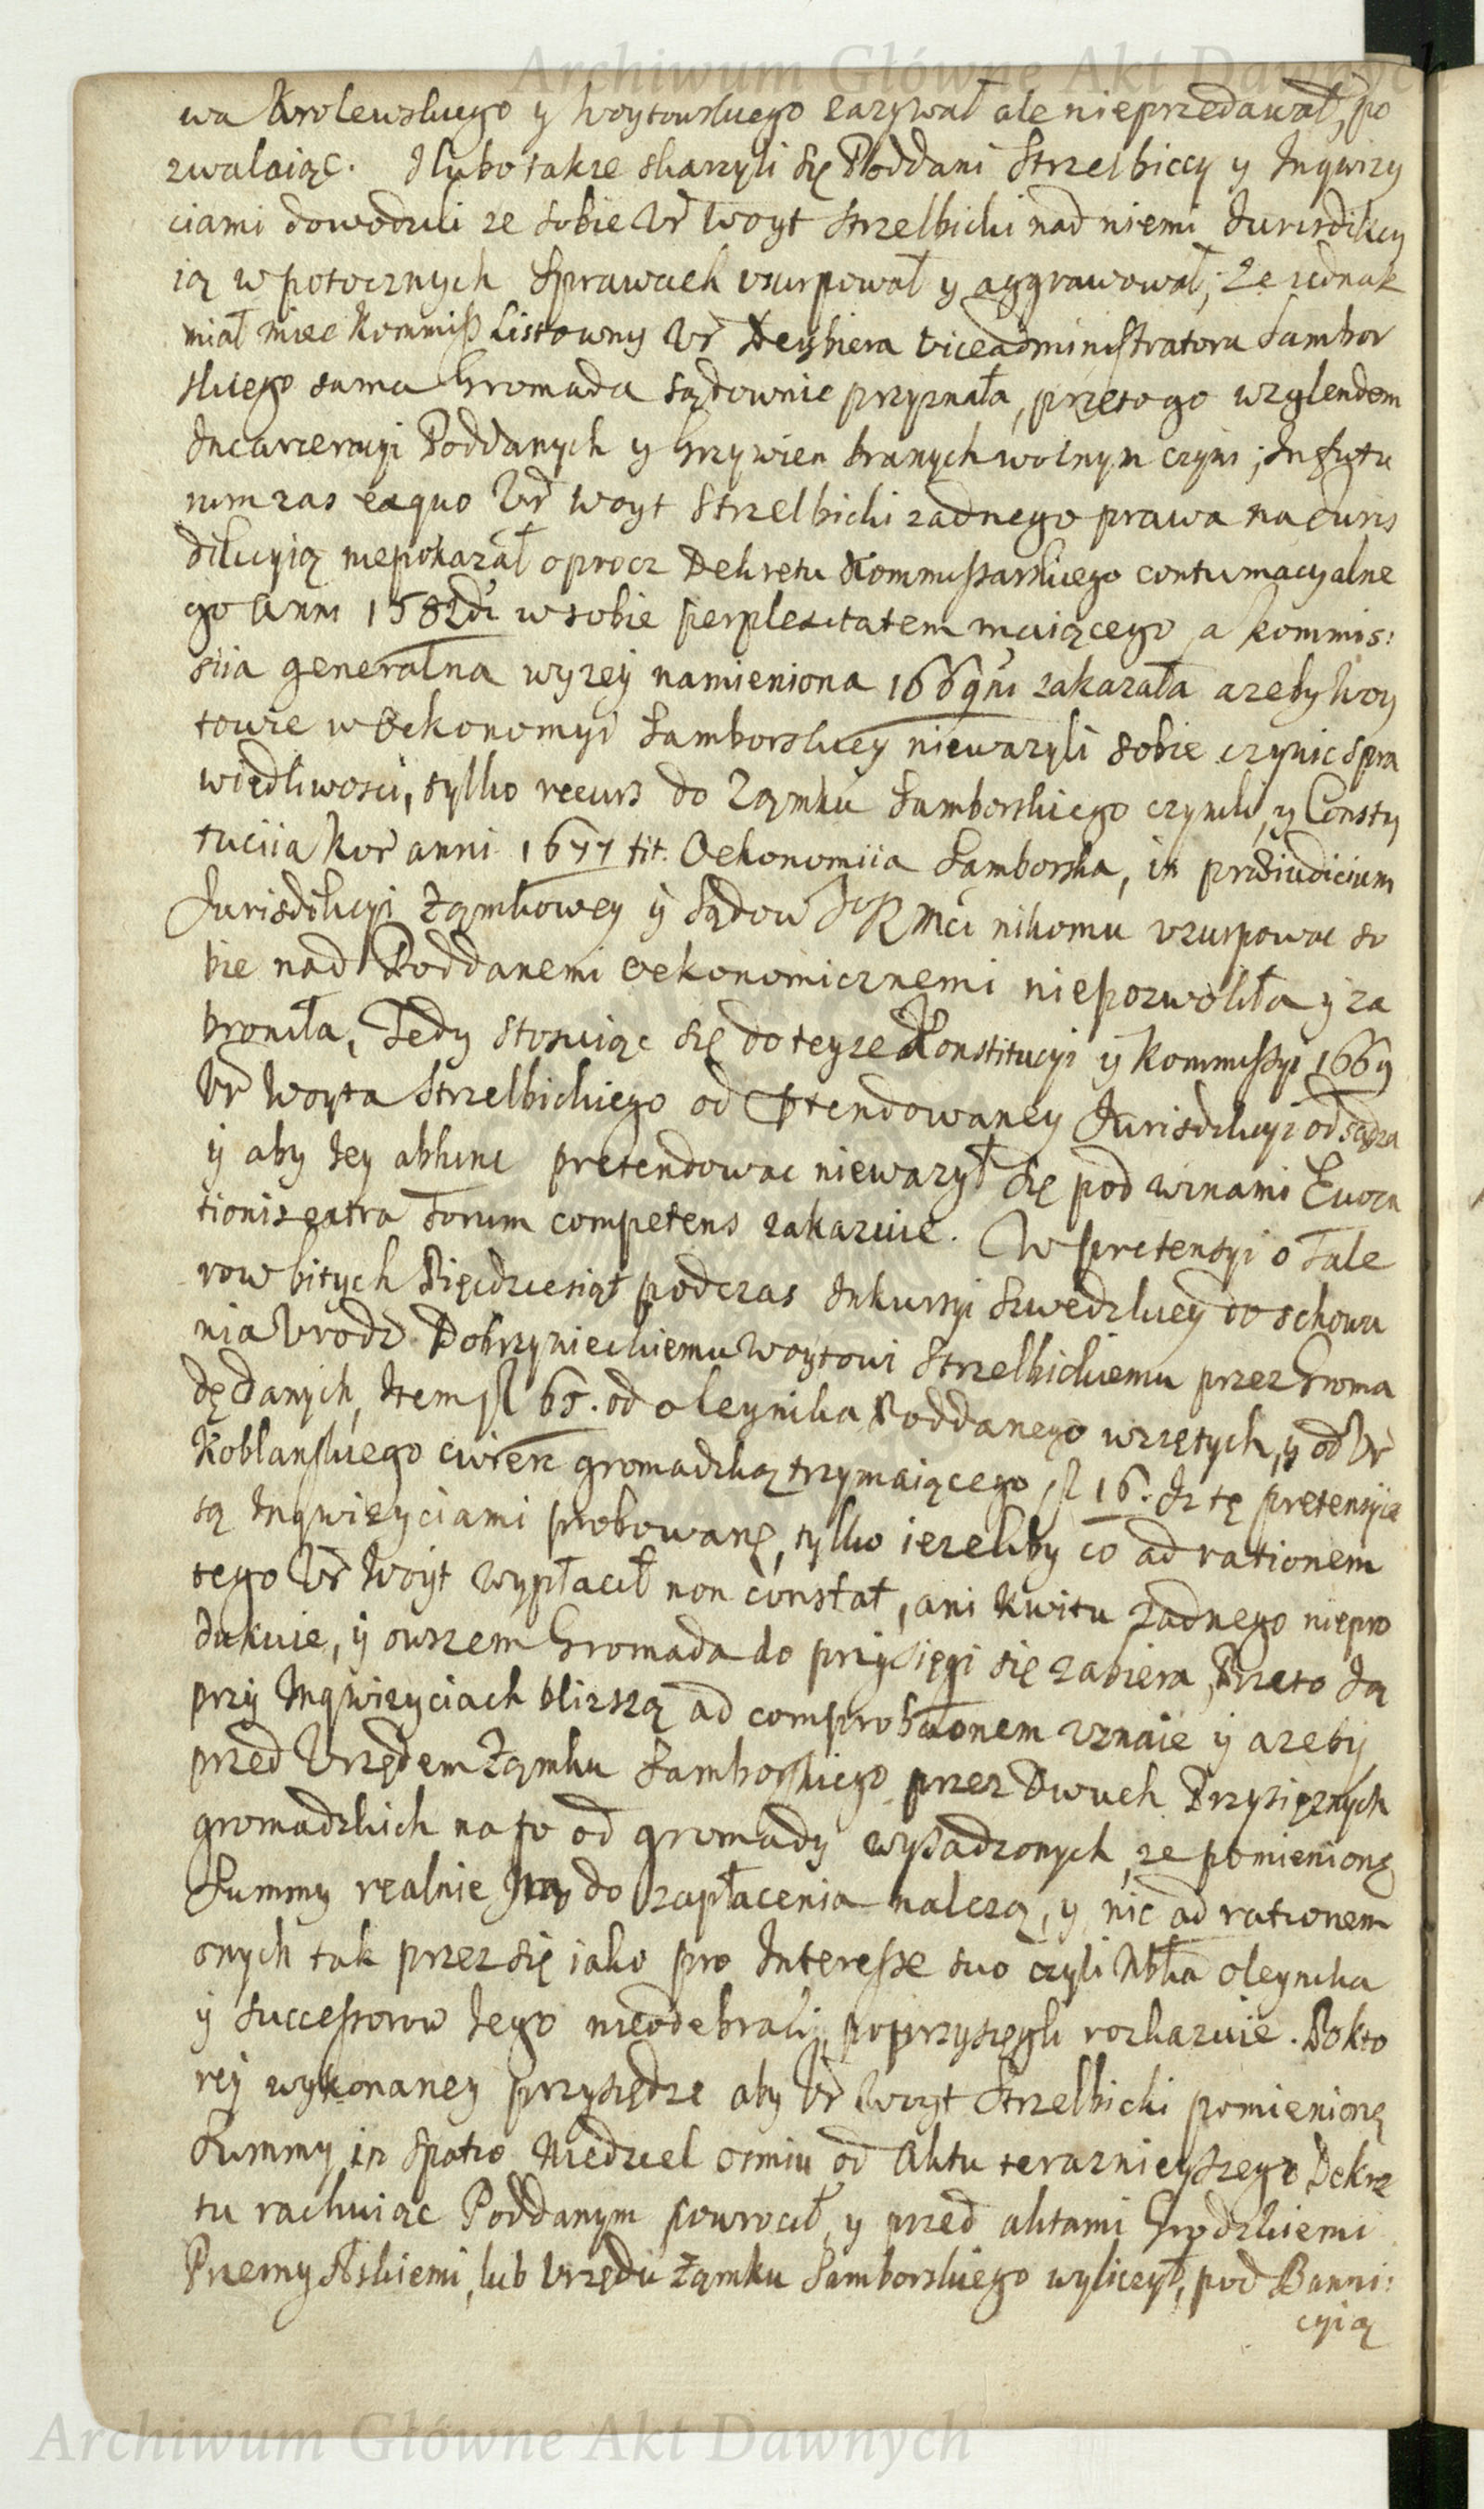 Archiwum Główne Akt Dawnych
wa Krolewskiego y Woytowskiego zazywał ale nieprzedawał, po
zwalaiąc. I lubo także skarzyli się Poddani Strzelbiccy y Inqwizy
ciami dowodzili ze sobie Ur Woyt Strzelbicki nad niemi Jurisdikcy
ią w potocznych sprawach vsurpował y aggrawował; Ze iednak
miał miec Kommiss Listowny Ur Deybiera Viceadministratora Sambor
skiego sama Gromada sądownie przyznała, przeto go wzglendem
Incarceracyi Poddanych y Grzywien branych wolnym czyni; In futu
rum zas ex quo Ur Woyt Strzelbicki zadnego prawa na Juris
dikcyią niepokazał oprocz Dekretu Kommissarskiego contumacyalne
go Anni 1582di w sobie perplexitatem maiącego, a kommis:
siia generalna wyzey namieniona 1669ni zakazała azeby Woy
towie w Oekonomyi Samborskiey niewazyli sobie czynic spra
wiedliwosci, tylko recurs do Ząmku Samborskiego czynili, y Consty
tuciia Kor anni 1677 tit. Oekonomiia Samborska, in præiudicium
Jurisdikcyi Ząmkowey y Sądow JoKMci nikomu vzurpowac so
bie nad Poddanemi oekonomicznemi niepozwoliła y za
broniła, Tedy stosuiąc się do teyze Konstitucyi y Kommissyi 1669
Ur Woyta Strzelbickiego od Ptendowaney Jurisdikcyi odsądza
y aby Jey abhinc pretendowac niewazył się pod winami Evoca
tionis extra Forum competens zakazuie. W pretensyi o Tale
row bitych Pięcdziesiąt podczas Inkursyi Szwedzkiey do schowa
nia Urodz. Dobrzynieckiemu Woytowi Strzelbickiemu przez Groma
dę danych, Item fl 65. od oleynika Poddanego wziętych, y od Ur
Koblanskiego cwierc gromadzką trzymaiącego fl 16. Iz tę pretensyie
są Inqwizyciami probowane, tylko iezeliby co ad rationem
tego Ur Woyt wypłacił non constat, ani kwitu zadnego niepro
dukuie, y owszem Gromada do przysięgi się zabiera, Przeto Ją
przy Inqwizyciach blizszą ad comprobaonem vznaie y azeby
przed Urzędem Ząmku Samborskiego przez Dwuch Przysięznych
gromadzkich na to od gromady wysadzonych, ze pomienione
Summy realnie Im do zapłacenia nalezą, y nic ad rationem
onych tak przez się iako pro Interesse suo czyli Mkla oleynika
y successorow Jego nieodebrali, poprzysięgli rozkazuie. Po kto
rey wykonaney przysiędze aby Ur Woyt Strzelbicki pomienione
Summy in spatio Niedziel osmiu od Aktu teraznieyszego Dekre
tu rachuiąc Poddanym powrocił, y przed aktami Grodzkiemi
Przemyslskiemi, lub Urzędu Ząmku Samborskiego wyliczył, pod Banni:
cyią
Archiwum Główne Akt Dawnych